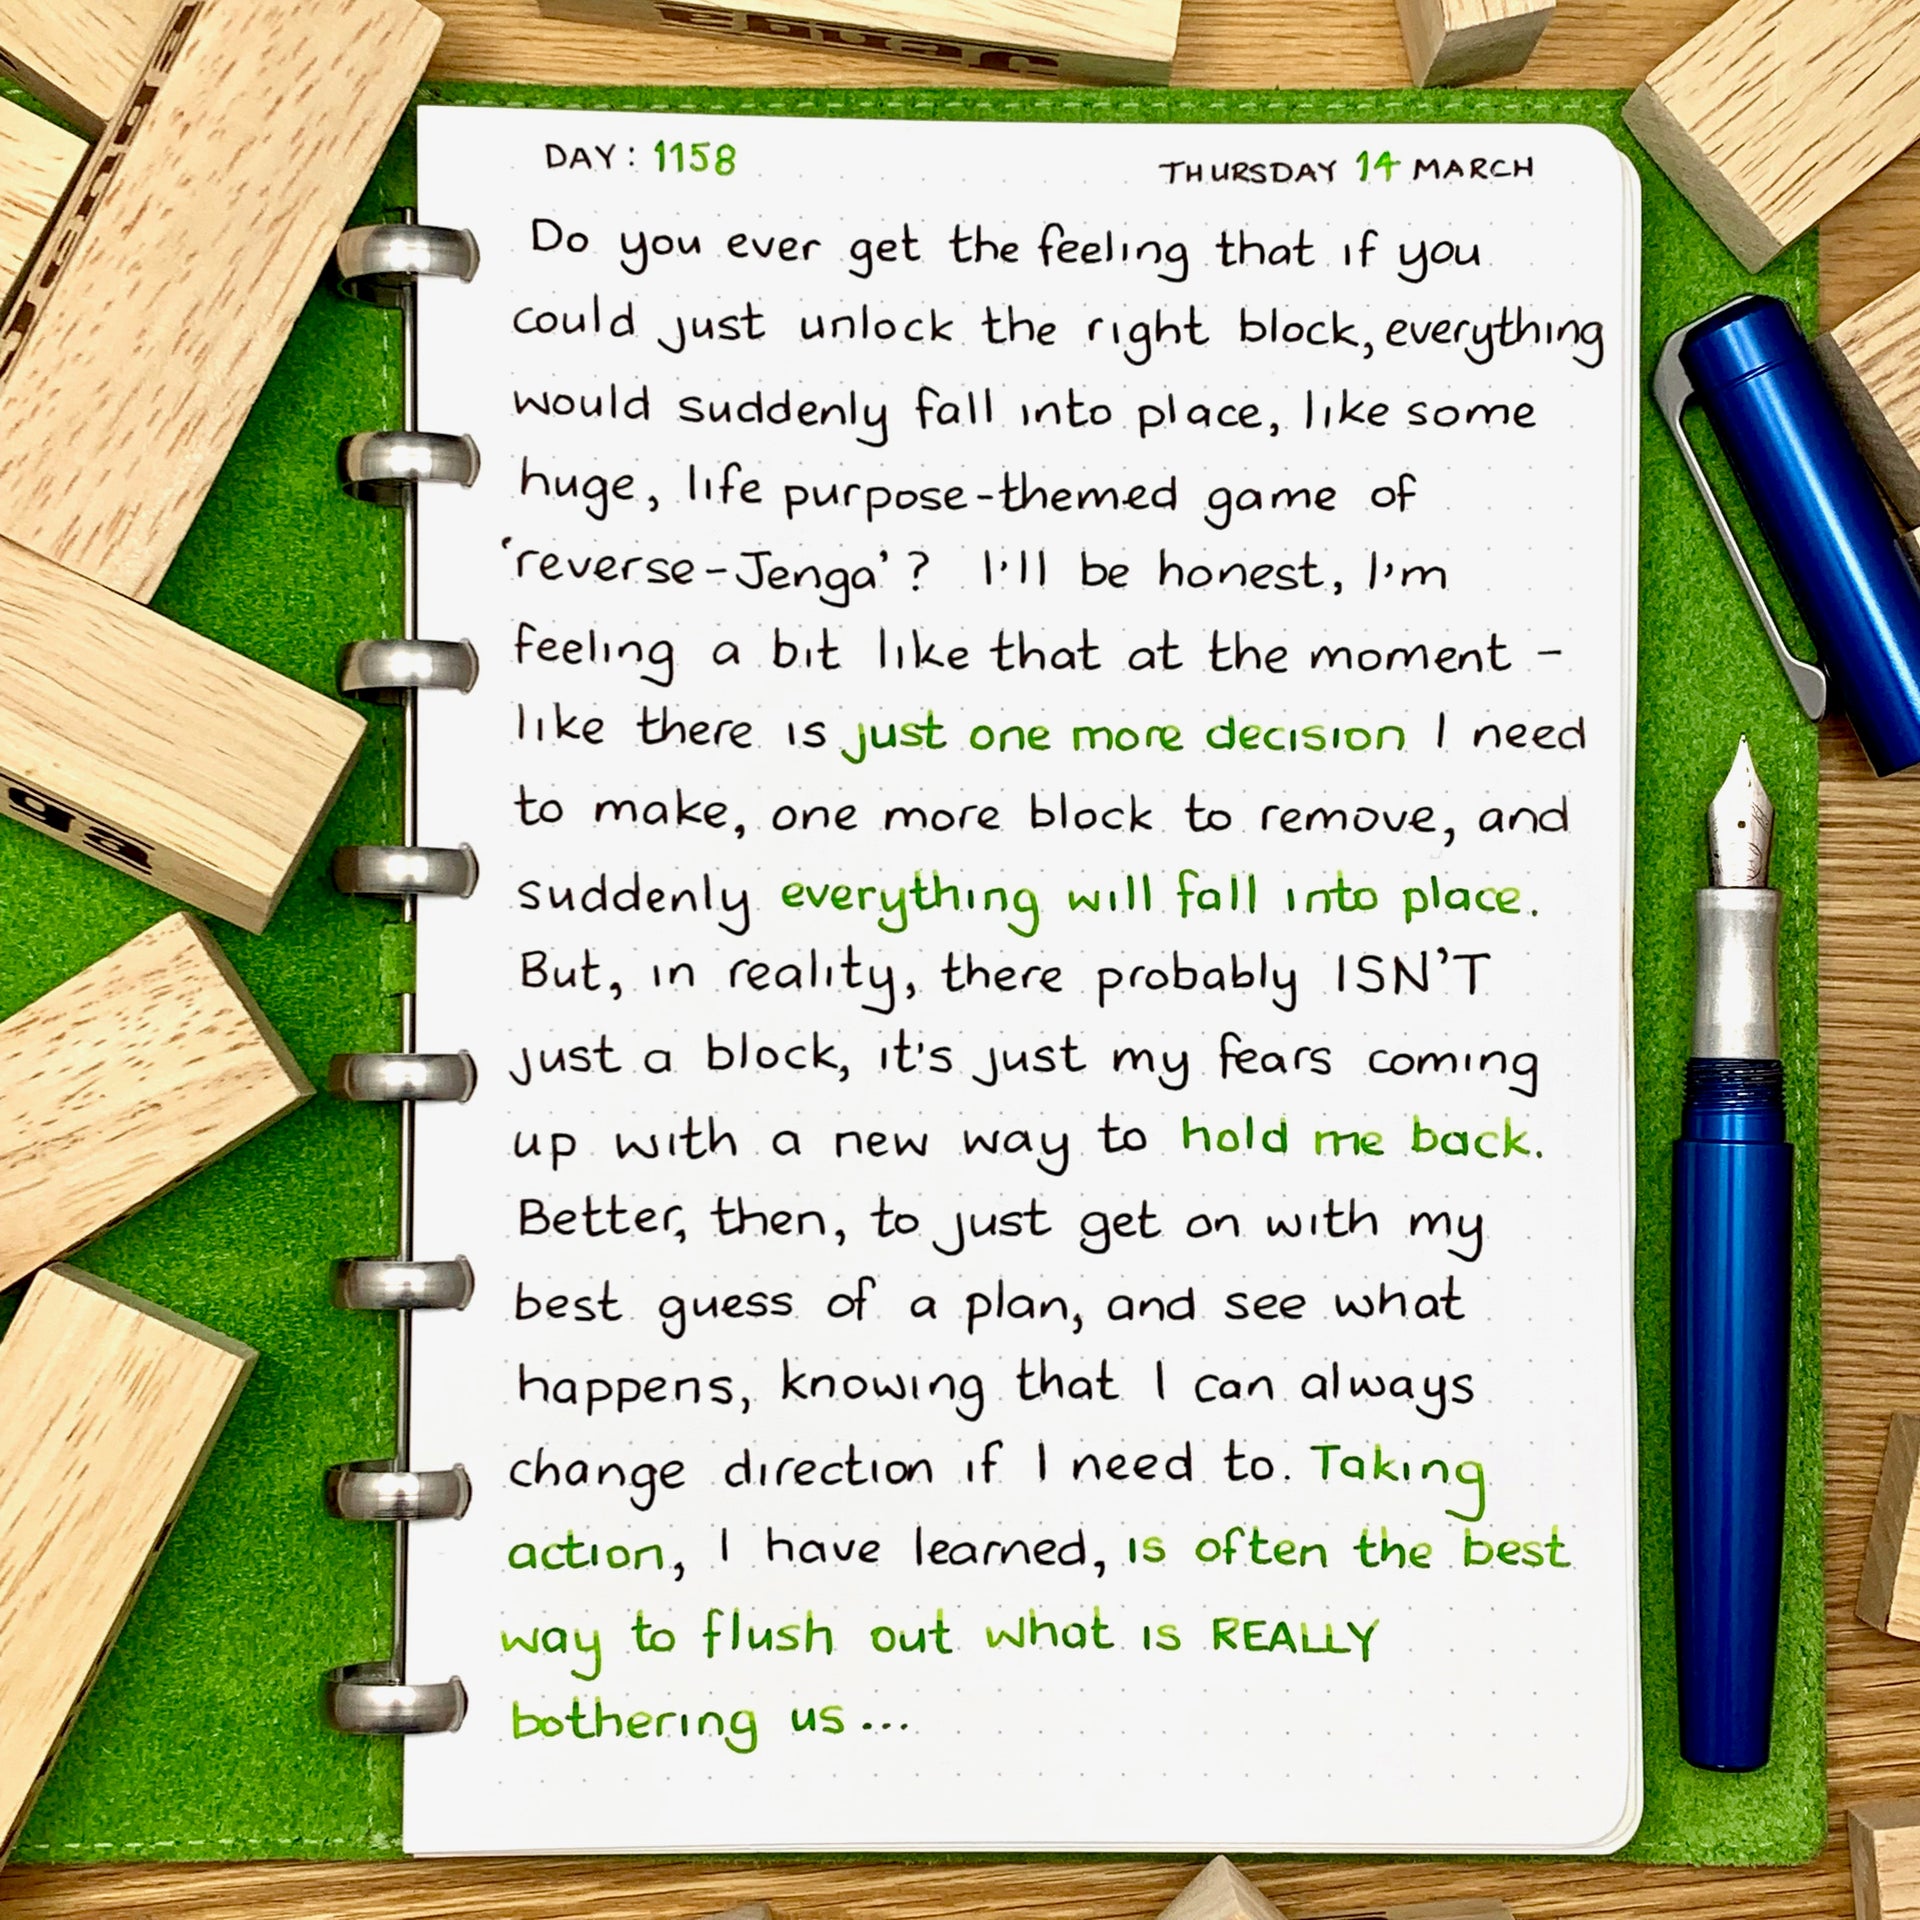 Jenga
Jenga
DAY: 1158
THURSDAY 14 MARCH
Do you ever get the feeling that if you
could just unlock the right block, everything
would suddenly fall into place, like some
huge, life purpose-themed game of
'reverse-Jenga'? I'll be honest, I'm
feeling a bit like that at the moment -
like there is just one more decision I need
to make, one more block to remove, and
suddenly everything will fall into place.
But, in reality, there probably ISN'T
just a block, it's just my fears coming
up with a new way to hold me back.
Better, then, to just get on with my
best guess of a plan, and see what
happens, knowing that I can always
change direction if I need to. Taking
action, I have learned, is often the best
way to flush out what is REALLY
bothering us...
ga